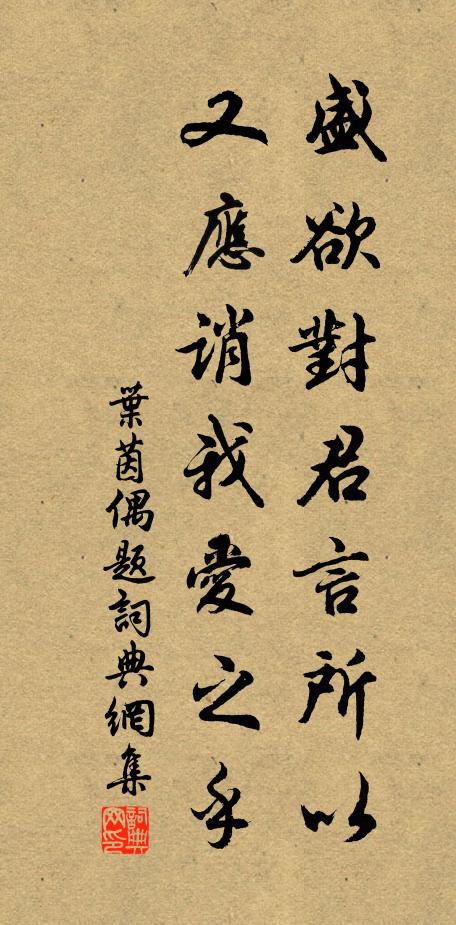 盛欲對君言所以
又應誚我愛之乎
葉茵偶題詞典網集
詞典網印